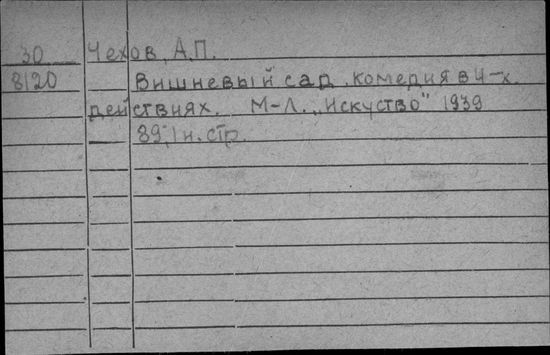 30 Чехов, А.П.
8120 Вишневый сад. комедия в 4-х.
действиях. М-Л. „Искуство" 1939
89, 1 н. стр.